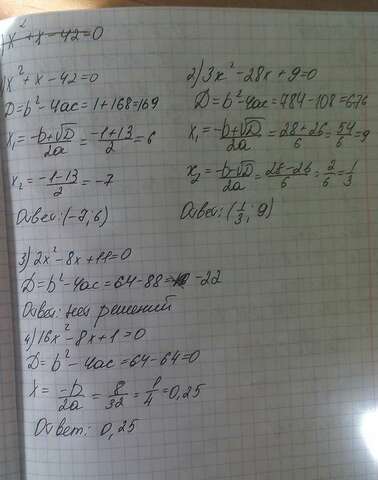 x² + x - 42 = 0
1) x² + x - 42 = 0
D = b² - 4ac = 1 + 168 = 169
x₁ = (-b + √D)/2a = (-1 + 13)/2 = 6
x₂ = (-1 - 13)/2 = -7
Ответ: (-7; 6)
2) 3x² - 28x + 9 = 0
D = b² - 4ac = 784 - 108 = 676
x₁ = (-b + √D)/2a = (28 + 26)/6 = 54/6 = 9
x₂ = (-b - √D)/2a = (28 - 26)/6 = 2/6 = 1/3
Ответ: (1/3; 9)
3) 2x² - 8x + 11 = 0
D = b² - 4ac = 64 - 88 = -22
Ответ: нет решений
4) 16x² - 8x + 1 = 0
D = b² - 4ac = 64 - 64 = 0
x = -b/2a = 8/32 = 1/4 = 0,25
Ответ: 0,25